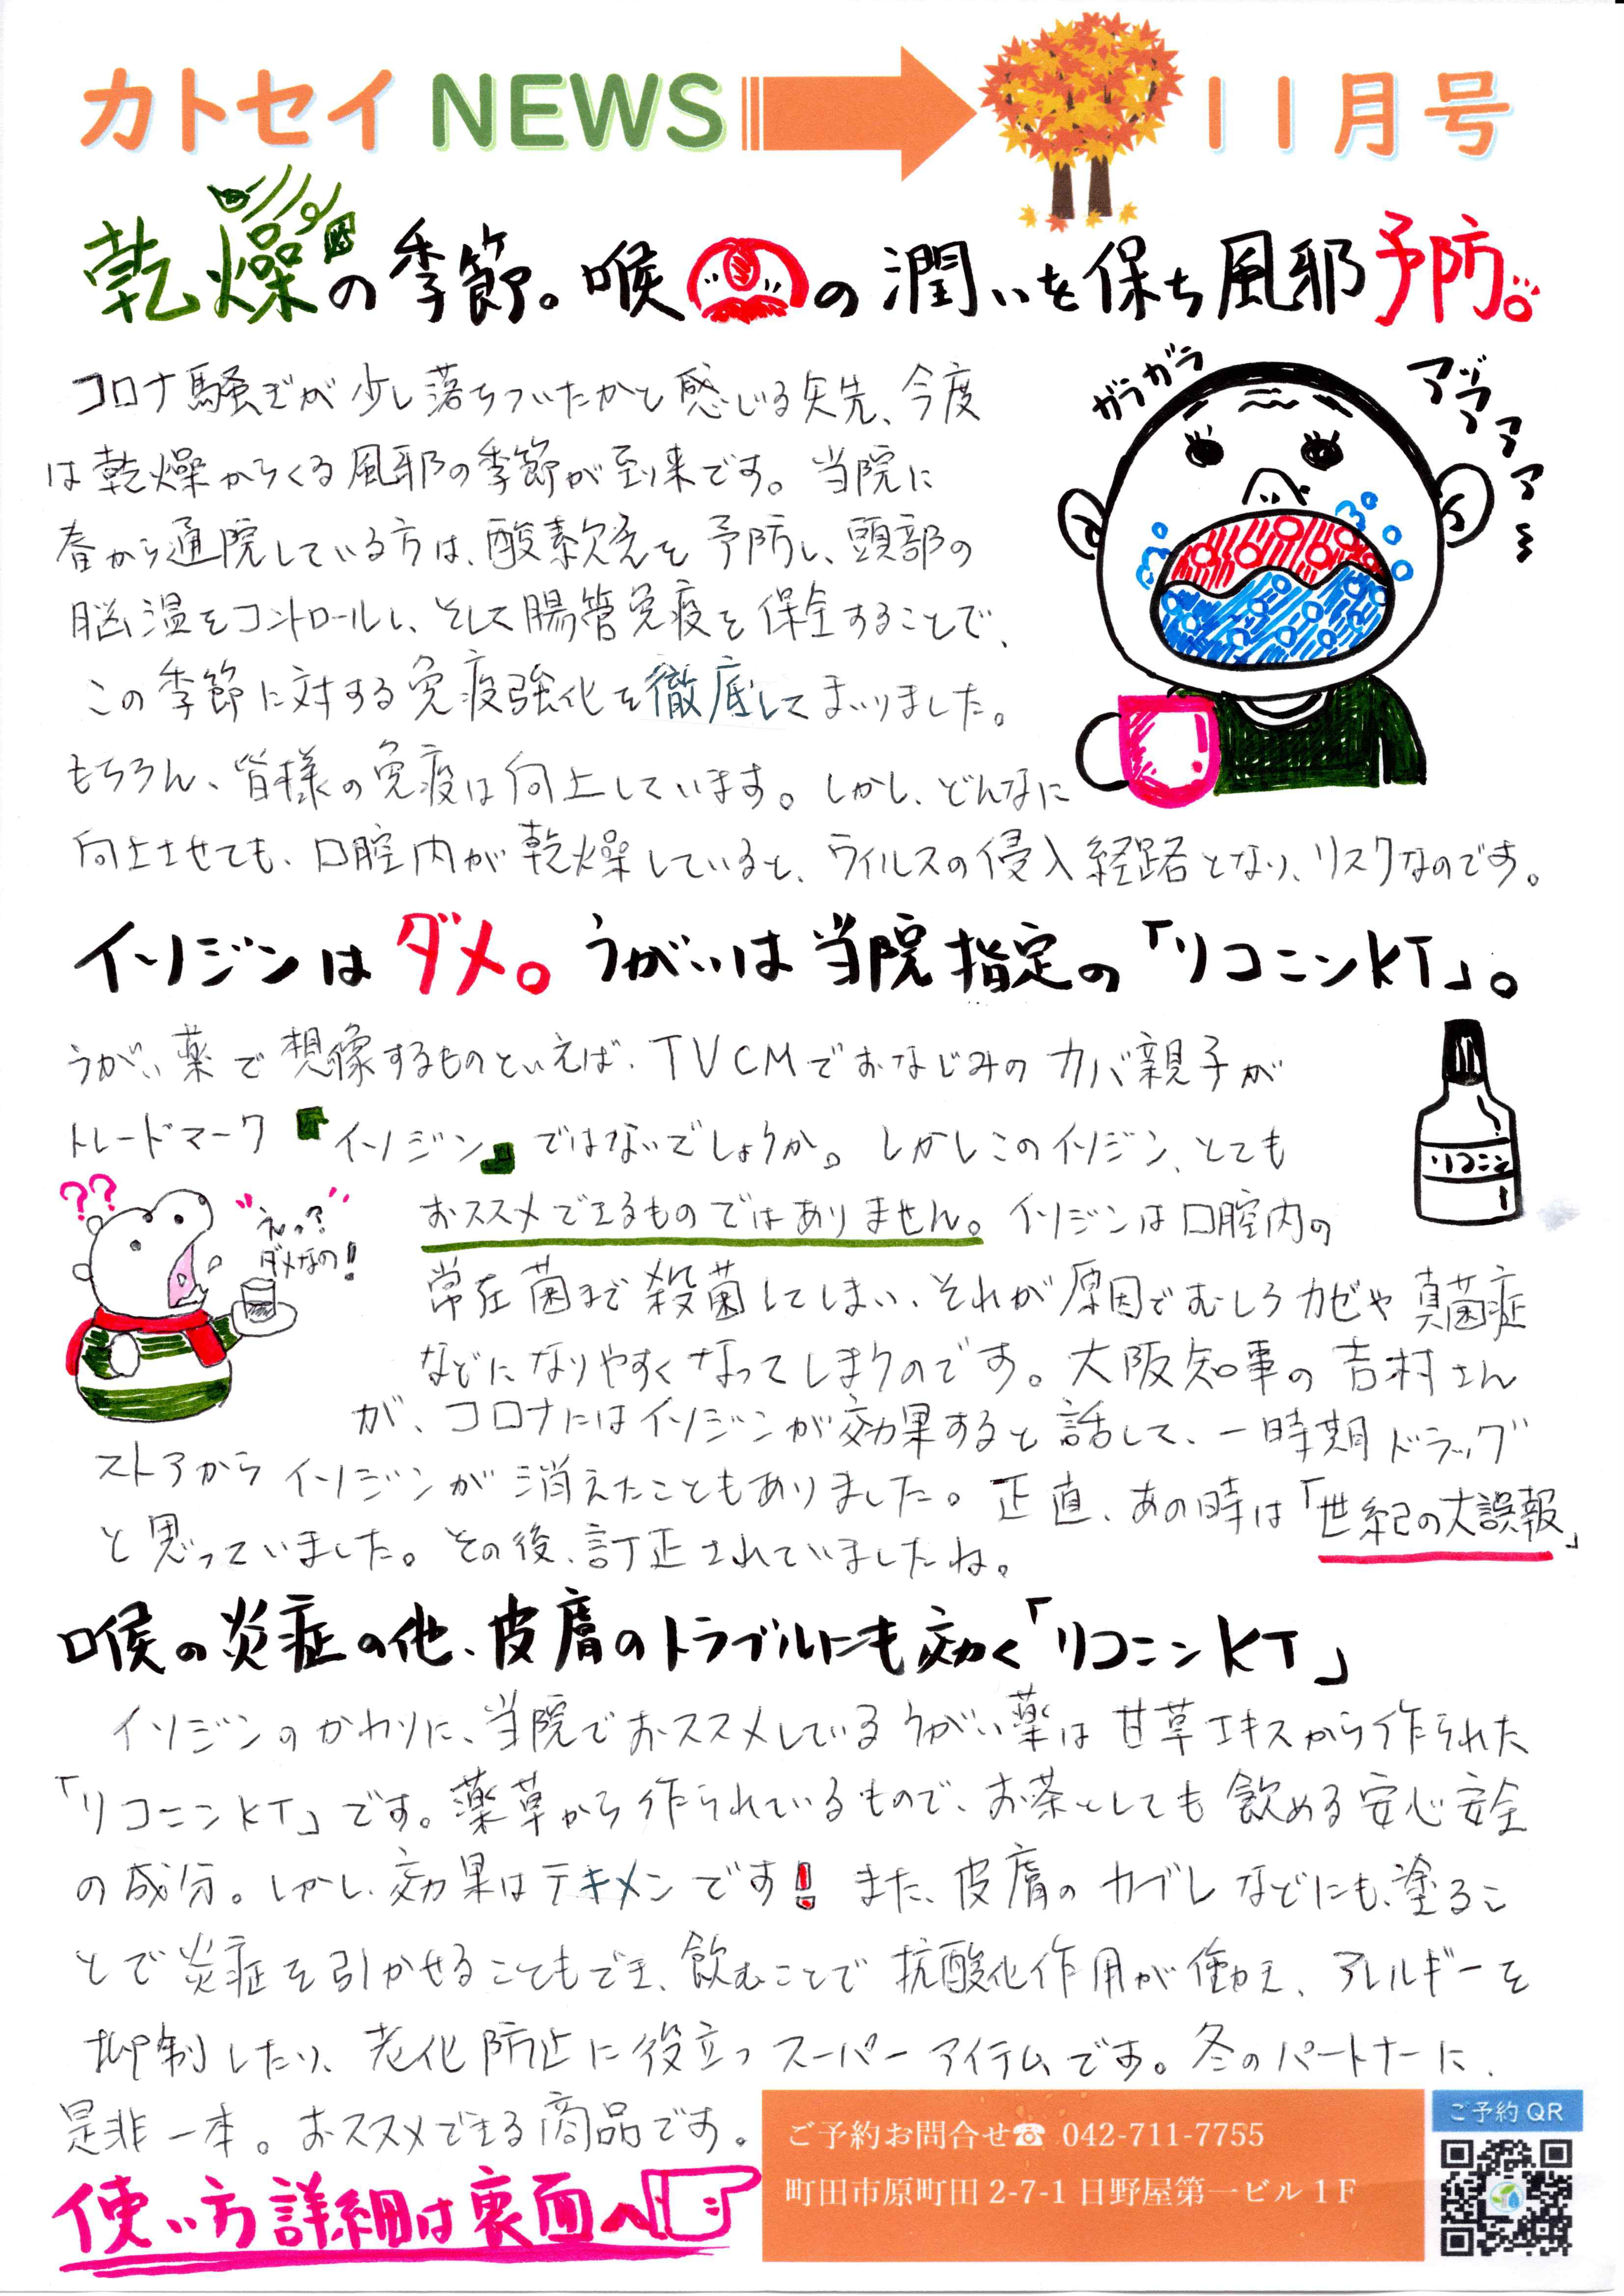 カトセイ NEWS 11月号
乾燥の季節。喉の潤いを保ち風邪予防。
ガラガラ
アヅアアア
コロナ騒ぎが少し落ちついたかと感じる矢先、今度
は乾燥からくる風邪の季節が到来です。当院に
春から通院している方は、酸素欠乏を予防し、頭部の
脳温をコントロールし、そして腸管免疫を保全することで、
この季節に対する免疫強化を徹底してまいりました。
もちろん、皆様の免疫は向上しています。しかし、どんなに
向上させても、口腔内が乾燥していると、ウイルスの侵入経路となり、リスクなのです。
イソジンはダメ。うがいは当院指定の「リコニンKT」。
うがい薬で想像するものといえば、TVCMでおなじみのカバ親子が
トレードマーク『イソジン』ではないでしょうか。しかしこのイソジン、とても
リコニン
??
えっ?
ダメなの!
おススメできるものではありません。イソジンは口腔内の
常在菌まで殺菌してしまい、それが原因でむしろカゼや真菌症
などになりやすくなってしまうのです。大阪知事の吉村さん
が、コロナにはイソジンが効果すると話して、一時期ドラッグ
ストアからイソジンが消えたこともありました。正直、あの時は「世紀の大誤報」
と思っていました。その後、訂正されていましたね。
喉の炎症の他、皮膚のトラブルにも効く「リコニンKT」
イソジンのかわりに、当院でおススメしているうがい薬は甘草エキスから作られた
「リコニンKT」です。薬草から作られているもので、お茶としても飲める安心安全
の成分。しかし、効果はテキメンです!また、皮膚のカブレなどにも、塗るこ
とで炎症を引かせることもでき、飲むことで抗酸化作用が働き、アレルギーを
抑制したり、老化防止に役立つスーパーアイテムです。冬のパートナーに、
是非一本。おススメできる商品です。
使い方詳細は裏面へ
ご予約お問合せ☎ 042-711-7755
町田市原町田 2-7-1 日野屋第一ビル 1F
ご予約 QR